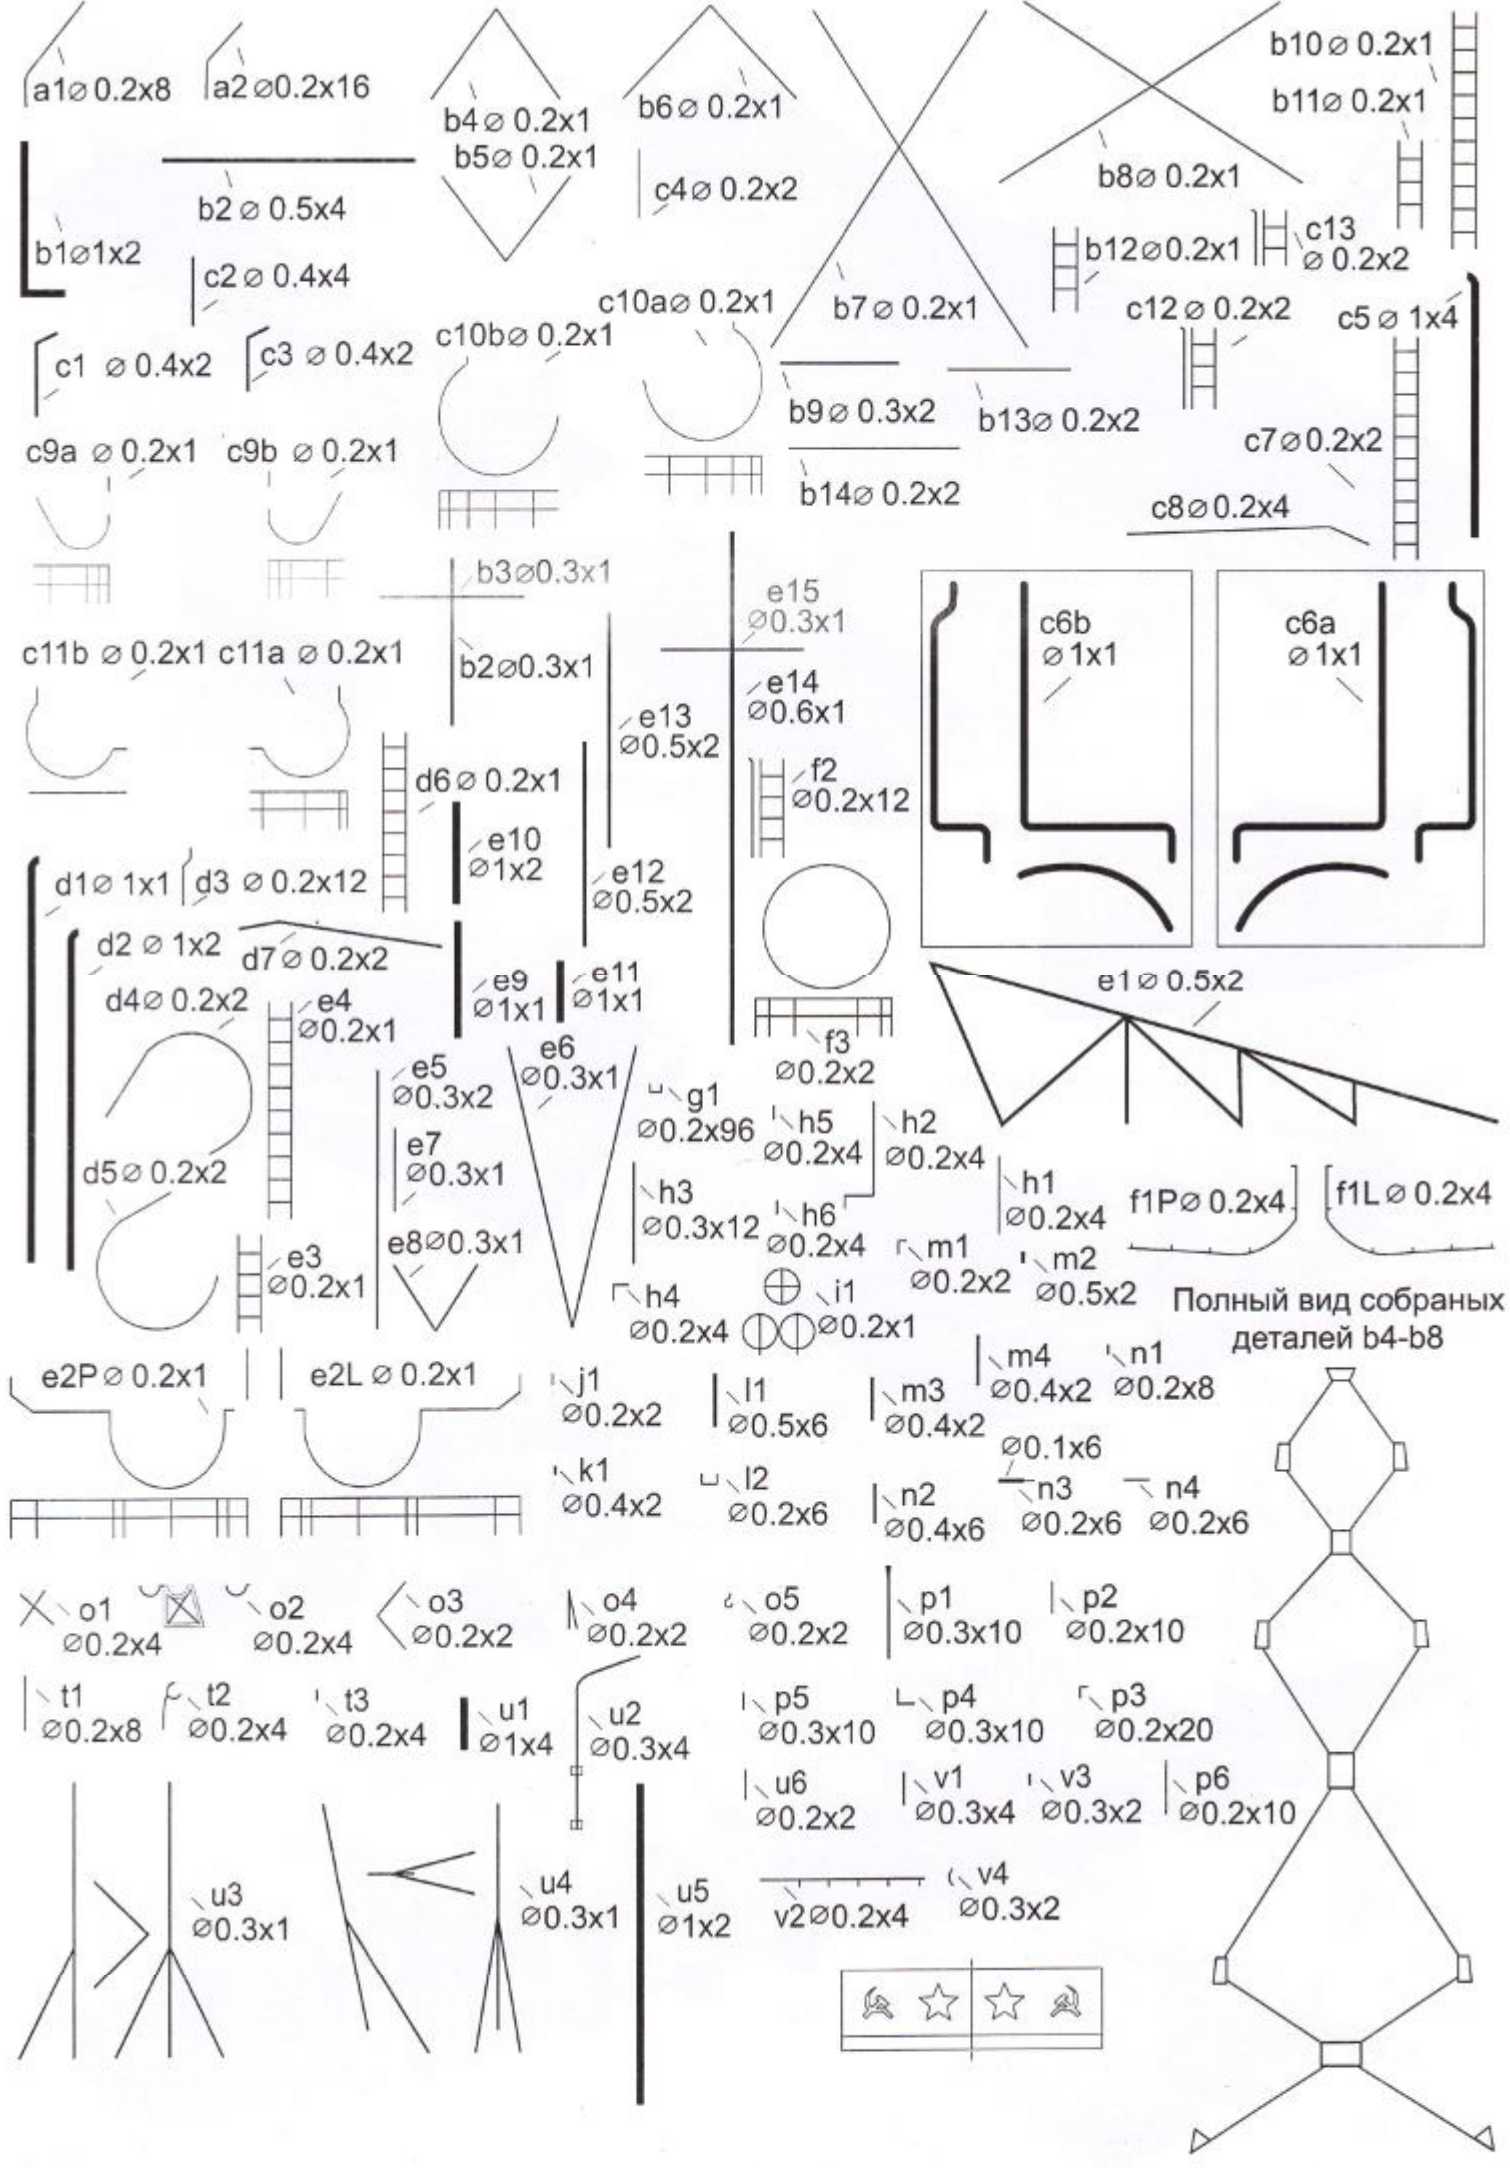 a1⌀ 0.2x8
a2 ⌀0.2x16
b4⌀ 0.2x1
b5⌀ 0.2x1
b6⌀ 0.2x1
b10⌀ 0.2x1
b11⌀ 0.2x1
b2 ⌀ 0.5x4
c4⌀ 0.2x2
b8⌀ 0.2x1
b1⌀1x2
c2 ⌀ 0.4x4
b12⌀0.2x1
c13
⌀ 0.2x2
c10a⌀ 0.2x1
b7⌀ 0.2x1
c12 ⌀ 0.2x2
c5 ⌀ 1x4
c10b⌀ 0.2x1
c1 ⌀ 0.4x2
c3 ⌀ 0.4x2
b9⌀ 0.3x2
b13⌀ 0.2x2
c9a ⌀ 0.2x1
c9b ⌀ 0.2x1
c7⌀0.2x2
b14⌀ 0.2x2
c8⌀0.2x4
b3⌀0.3x1
e15
⌀0.3x1
c6b
⌀1x1
c6a
⌀1x1
c11b ⌀ 0.2x1
c11a ⌀ 0.2x1
b2⌀0.3x1
e14
⌀0.6x1
e13
⌀0.5x2
d6⌀ 0.2x1
f2
⌀0.2x12
e10
⌀1x2
e12
⌀0.5x2
d1⌀ 1x1
d3 ⌀ 0.2x12
d2 ⌀ 1x2
d7⌀ 0.2x2
e9
⌀1x1
e11
⌀1x1
e1⌀ 0.5x2
d4⌀ 0.2x2
e4
⌀0.2x1
f3
⌀0.2x2
e5
⌀0.3x2
e6
⌀0.3x1
g1
⌀0.2x96
h5
⌀0.2x4
h2
⌀0.2x4
d5⌀ 0.2x2
e7
⌀0.3x1
h3
⌀0.3x12
h6
⌀0.2x4
h1
⌀0.2x4
f1P⌀ 0.2x4
f1L⌀ 0.2x4
e8⌀0.3x1
e3
⌀0.2x1
m1
⌀0.2x2
m2
⌀0.5x2
h4
⌀0.2x4
i1
⌀0.2x1
Полный вид собраных
деталей b4-b8
e2P⌀ 0.2x1
e2L ⌀ 0.2x1
j1
⌀0.2x2
l1
⌀0.5x6
m3
⌀0.4x2
m4
⌀0.4x2
n1
⌀0.2x8
⌀0.1x6
k1
⌀0.4x2
l2
⌀0.2x6
n2
⌀0.4x6
n3
⌀0.2x6
n4
⌀0.2x6
o1
⌀0.2x4
o2
⌀0.2x4
o3
⌀0.2x2
o4
⌀0.2x2
o5
⌀0.2x2
p1
⌀0.3x10
p2
⌀0.2x10
t1
⌀0.2x8
t2
⌀0.2x4
t3
⌀0.2x4
u1
⌀1x4
u2
⌀0.3x4
p5
⌀0.3x10
p4
⌀0.3x10
p3
⌀0.2x20
u6
⌀0.2x2
v1
⌀0.3x4
v3
⌀0.3x2
p6
⌀0.2x10
u3
⌀0.3x1
u4
⌀0.3x1
u5
⌀1x2
v2⌀0.2x4
v4
⌀0.3x2